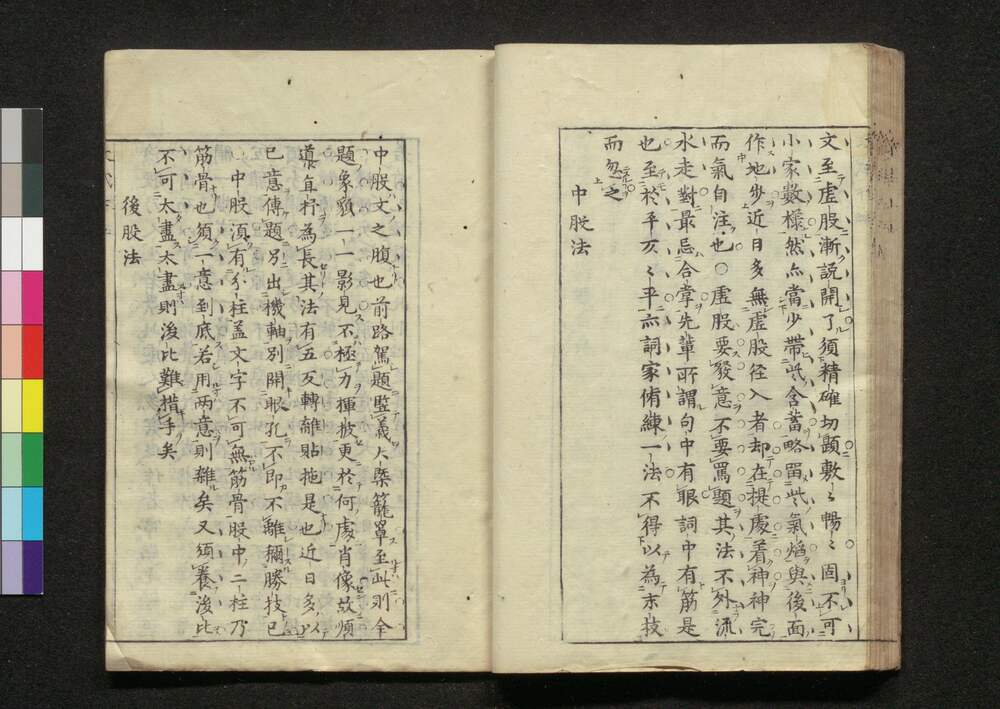 文至虚股漸説開了須精確切題敷〻暢〻固不可
小家數樣然亦當少帶些含蓄略留些氣熖與後面
作地步近日多無虚股径入者却在提處着神神完
而氣自注也○虚股要發意不要罵題其法不外流
水走對最忌合掌先軰所謂句中有眼詞中有筋是
也至於平仄〻平亦詞家脩練一法不得以為末技
而忽之
中股法
中股文之腹也前路駕題監義大槩籠罩至此則全
題象貌一一影見不極力揮披更於何處肖像故順
導宜杼為長其法有五反轉離貼拖是也近日多以
已意傳題另出機軸別開眼孔不即不離揣勝技已
中股湏有分柱盖文字不可無筋骨股中二柱乃
筋骨也須一意到底若用兩意則雜矣又須養後比
不可太盡太盡則後比難措手矣
後股法